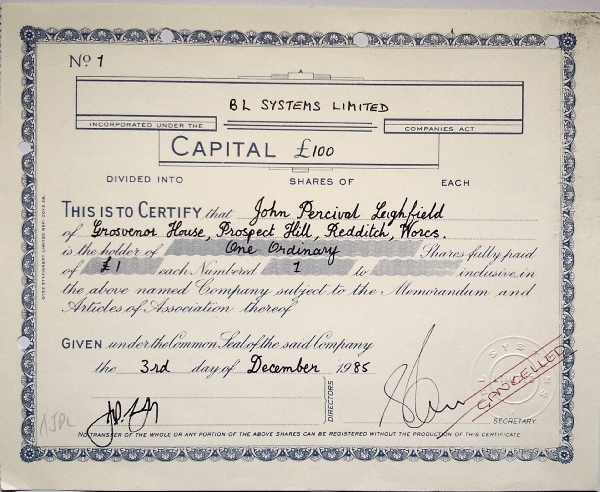 No 1
BL SYSTEMS LIMITED
INCORPORATED UNDER THE COMPANIES ACT
CAPITAL £100
DIVIDED INTO SHARES OF EACH
THIS IS TO CERTIFY that John Percival Leighfield
of Grosvenor House, Prospect Hill, Redditch, Worcs.
is the holder of One Ordinary Shares fully paid
of £1 each Numbered 1 to inclusive in
the above named Company subject to the Memorandum and
Articles of Association thereof
GIVEN under the Common Seal of the said Company
the 3rd day of December 1985
DIRECTORS
CANCELLED
SECRETARY
NO TRANSFER OF THE WHOLE OR ANY PORTION OF THE ABOVE SHARES CAN BE REGISTERED WITHOUT THE PRODUCTION OF THIS CERTIFICATE